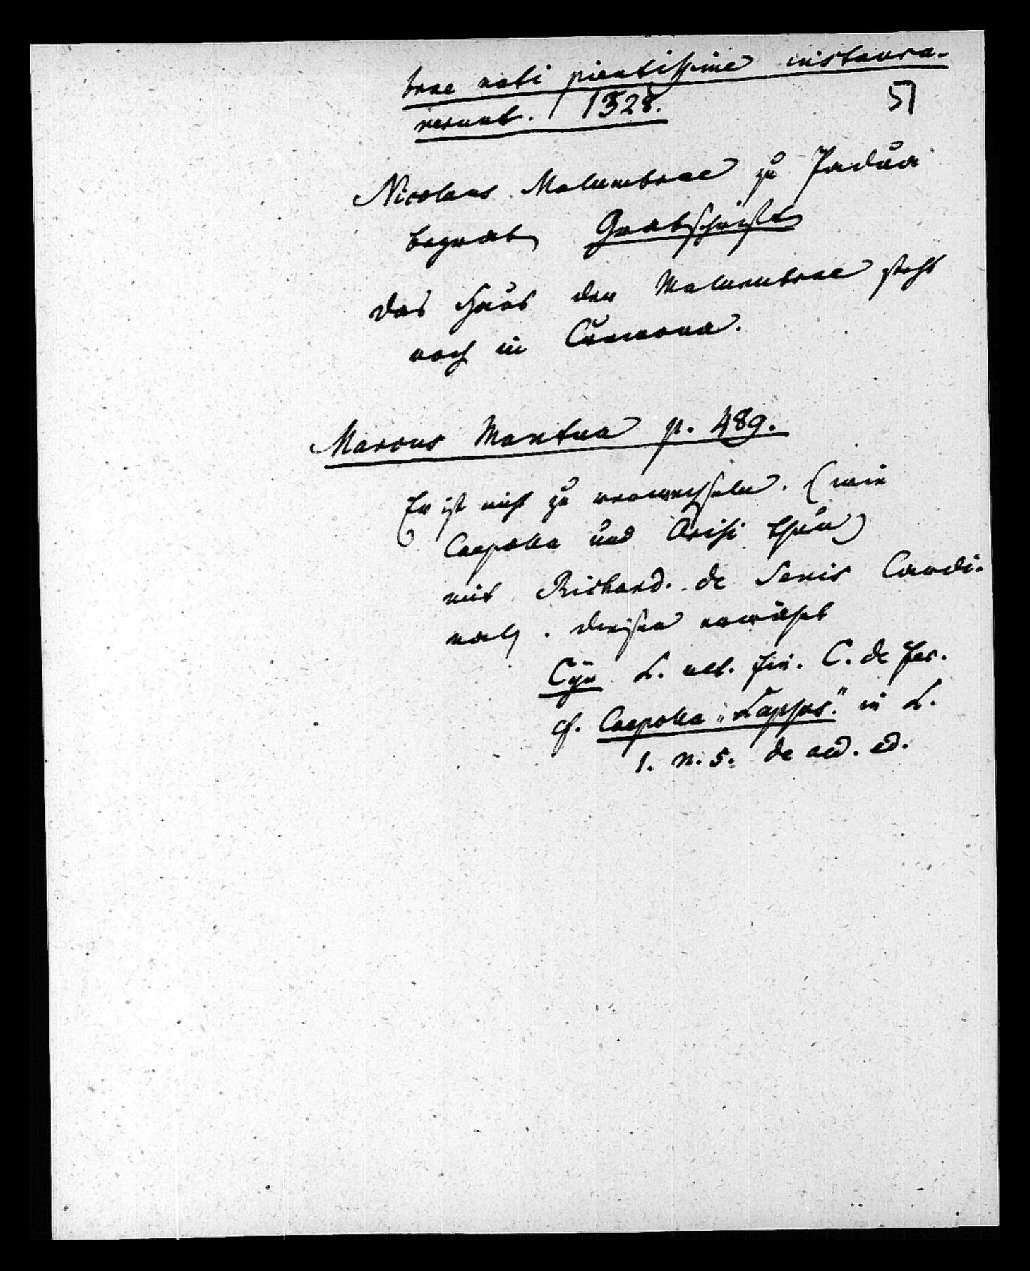 brae nati pientissime instaura-
verunt. 1528.
51
Nicolaus Malumbrae zu Padua
begrab Grabschrift
das Haus der Malumbrae steht
noch in Cremona.
Marcus Mantua p. 489.
Er ist nicht zu verwechseln. (wie
Caepolla und Arisi thun)
mit Richard. de Senis Cardi-
nal. dieser erwähnt
Cyn L. ult. fin. C. de
cf. Caepolla "Lapsus." in L.
1. n. 5. de aed. ed.